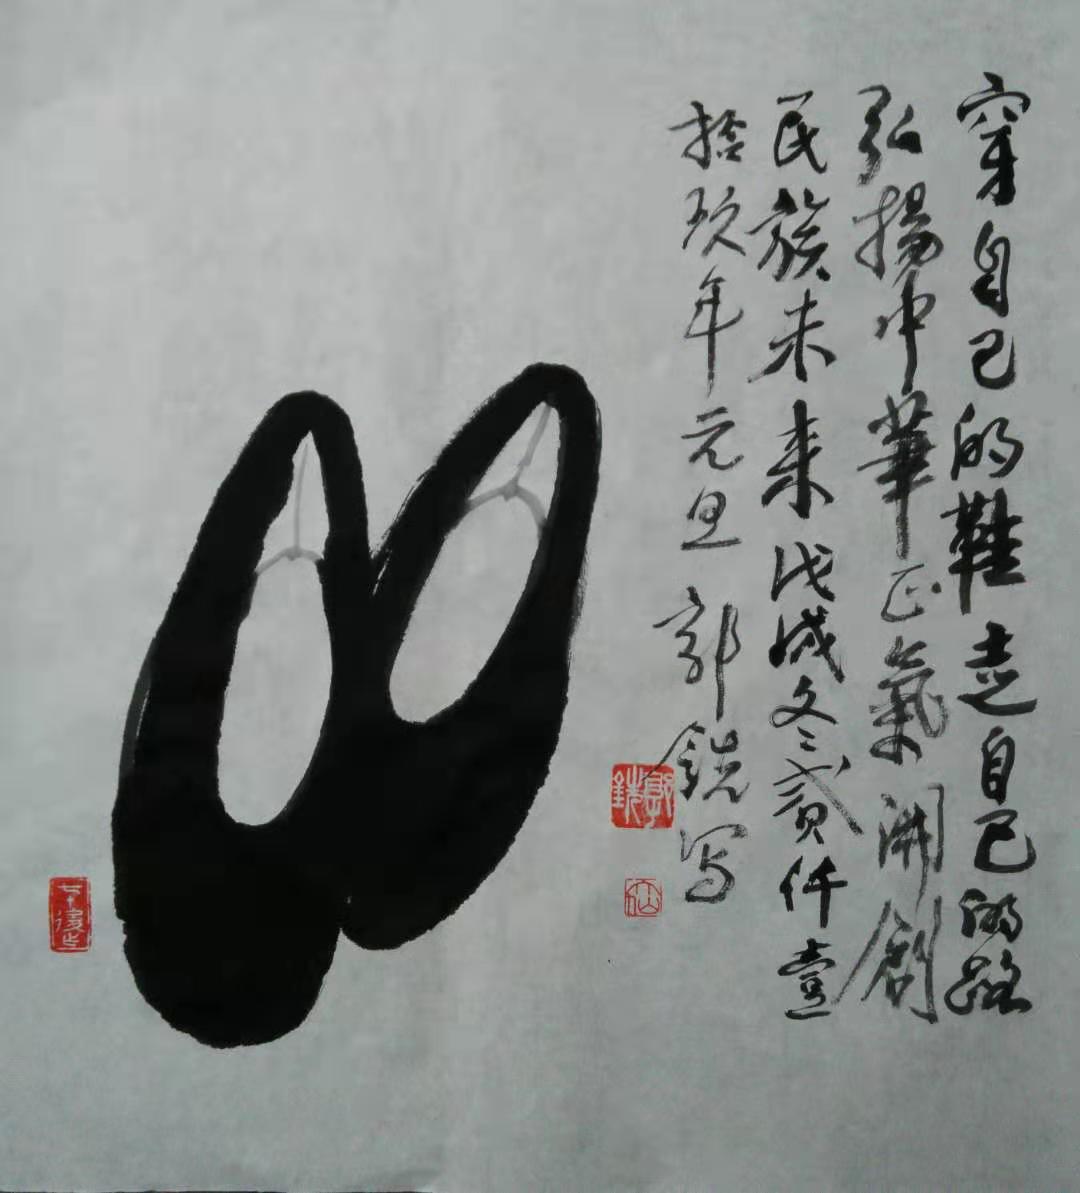 穿自己的鞋走自己的路
弘揚中華正氣開創
民族未来戊戌冬貳仟壹
拾玖年元旦 郭銑写
郭銑